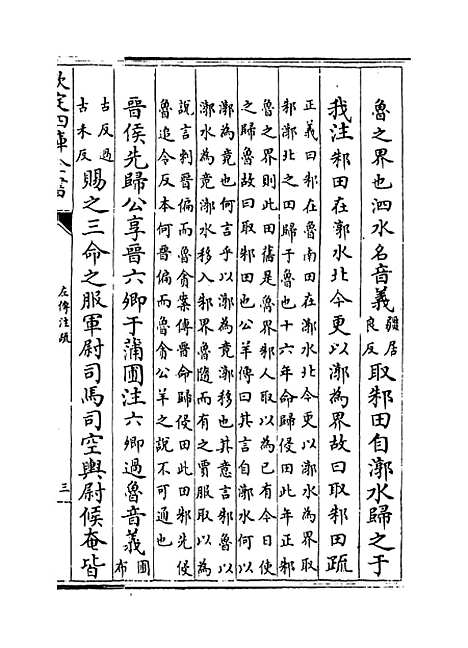 魯之界也泗水名音義疆居良反取邾田自漷水歸之于
我注邾田在漷水北今更以漷為界故曰取邾田疏
正義曰邾在魯南田在漷水北今更以漷水為界取
邾漷北之田歸于魯也十六年命歸侵田此年正邾
魯之界則此田舊是魯界邾人取以為已有今日使
之歸魯故曰取邾田也公羊傳曰其言自漷水何以
漷為竟也何言乎以漷為竟漷移也其意言邾魯以
漷水為竟漷水移入邾界魯隨而有之賈服取以為
說言刺晉偏而魯貪案傳晉命歸侵田此田邾先侵
魯追令反本何晉偏而魯貪公羊之說不可通也
晉侯先歸公享晉六卿于蒲圃注六卿過魯音義圃布
古反過古禾反賜之三命之服軍尉司馬司空輿尉候奄皆
欽定四庫全書
左傳注疏
三